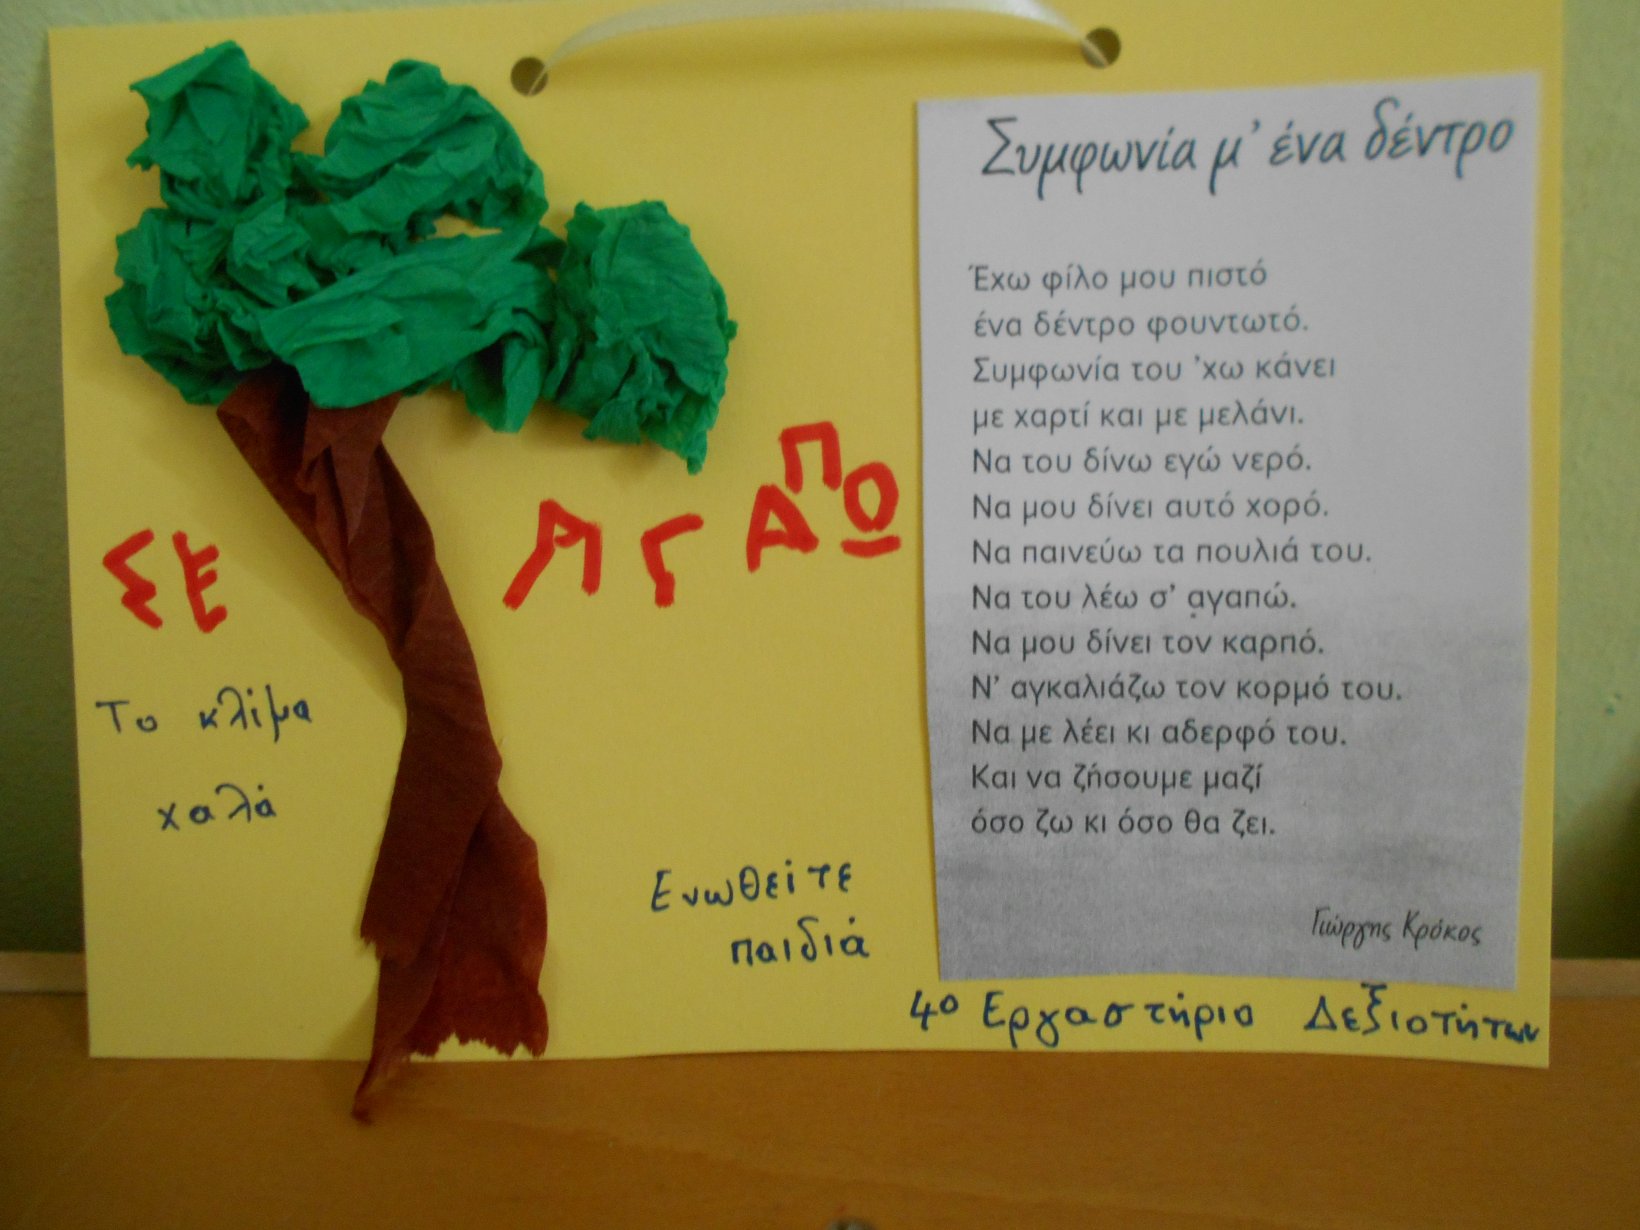 ΣΕ ΑΓΑΠΩ
Το κλίμα
χαλά
Ενωθείτε
παιδιά
Συμφωνία μ' ένα δέντρο
Έχω φίλο μου πιστό
ένα δέντρο φουντωτό.
Συμφωνία του 'χω κάνει
με χαρτί και με μελάνι.
Να του δίνω εγώ νερό.
Να μου δίνει αυτό χορό.
Να παινεύω τα πουλιά του.
Να του λέω σ' αγαπώ.
Να μου δίνει τον καρπό.
Ν' αγκαλιάζω τον κορμό του.
Να με λέει κι αδερφό του.
Και να ζήσουμε μαζί
όσο ζω κι όσο θα ζει.
Γιώργης Κρόκος
4ο Εργαστήριο Δεξιοτήτων